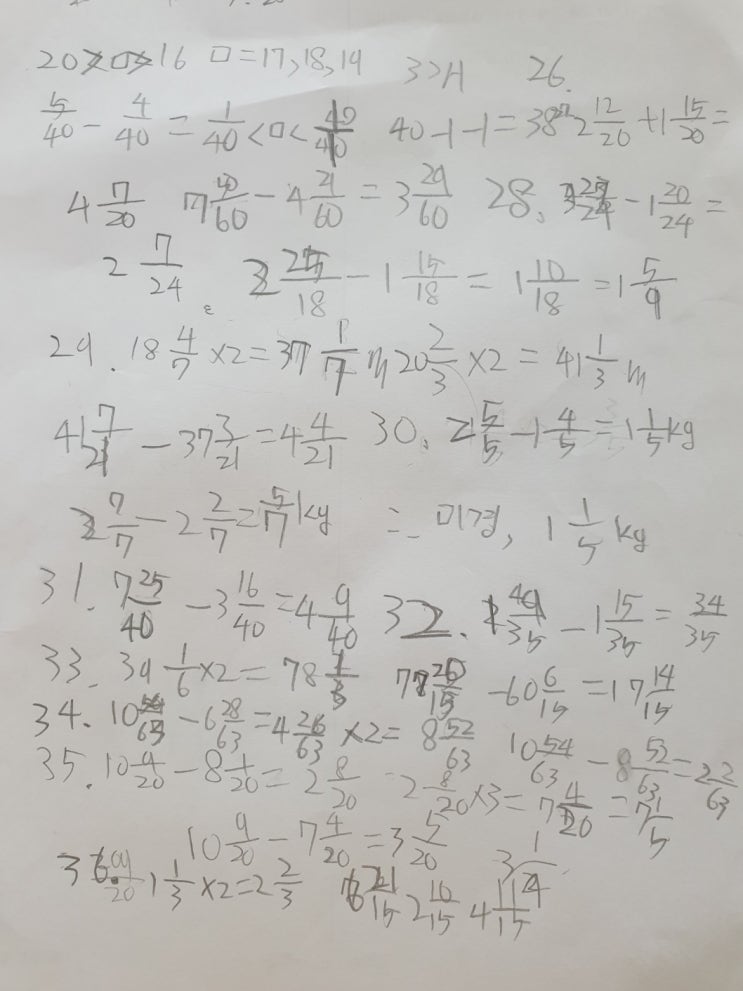 20>□>16 □=17,18,19 37개 26.
5/40 - 4/40 = 1/40 < □ < 40/40 40-1-1=38 27 2 12/20 + 1 15/20 =
4 7/20 7 /60 - 4 21/60 = 3 29/60 28. 24 - 1 20/24 =
2 7/24 . 2 25/18 - 1 15/18 = 1 10/18 = 1 5/9
29. 18 4/7 ×2=37 1/7 m 20 2/3 ×2 = 41 1/3 m
41 7/21 - 37 3/21 = 4 4/21 30. 2 5/5 - 1 4/5 = 1 1/5 kg
2 7/7 - 2 2/7 = 5/7 kg = 미경, 1 1/5 kg
31. 7 25/40 - 3 16/40 = 4 9/40 32. 1 49/35 - 1 15/35 = 34/35
33. 39 1/6 ×2 = 78 1/3 77 20/15 - 60 6/15 = 17 14/15
34. 10 54/63 - 6 28/63 = 4 26/63 ×2= 8 52/63 10 54/63 - 8 52/63 = 2 2/63
35. 10 9/20 - 8 1/20 = 2 8/20 2 8/20 ×3 = 7 4/20 = 7 1/5
10 9/20 - 7 4/20 = 3 5/20 3 1/4
36. 1 1/3 ×2=2 2/3 6 21/15 2 10/15 4 11/15